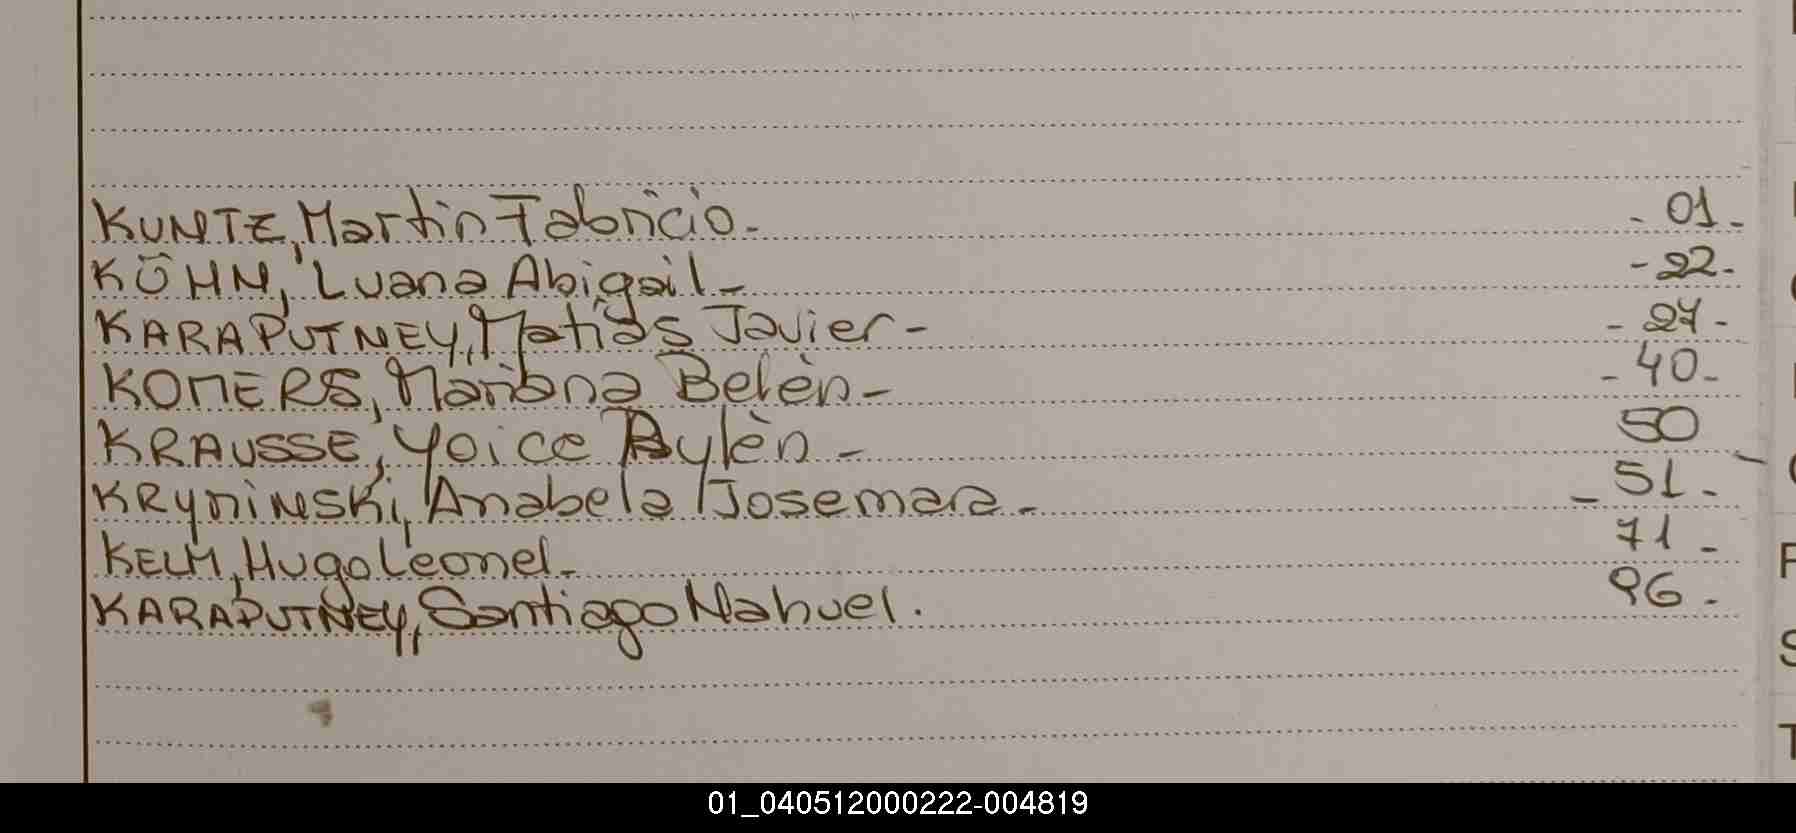 KUNTZ, Martín Fabricio. - 01 -
KÖHN, Luana Abigail - - 22 -
KARAPUTNEY, Matías Javier - - 27 -
KOMERS, Mariana Belèn - - 40 -
KRAUSSE, Yoice Aylèn - 50
KRYNINSKI, Anabela Josemara - - 51 -
KELM, Hugo Leonel - 71 -
KARAPUTNEY, Santiago Nahuel. 96 -
01_040512000222-004819